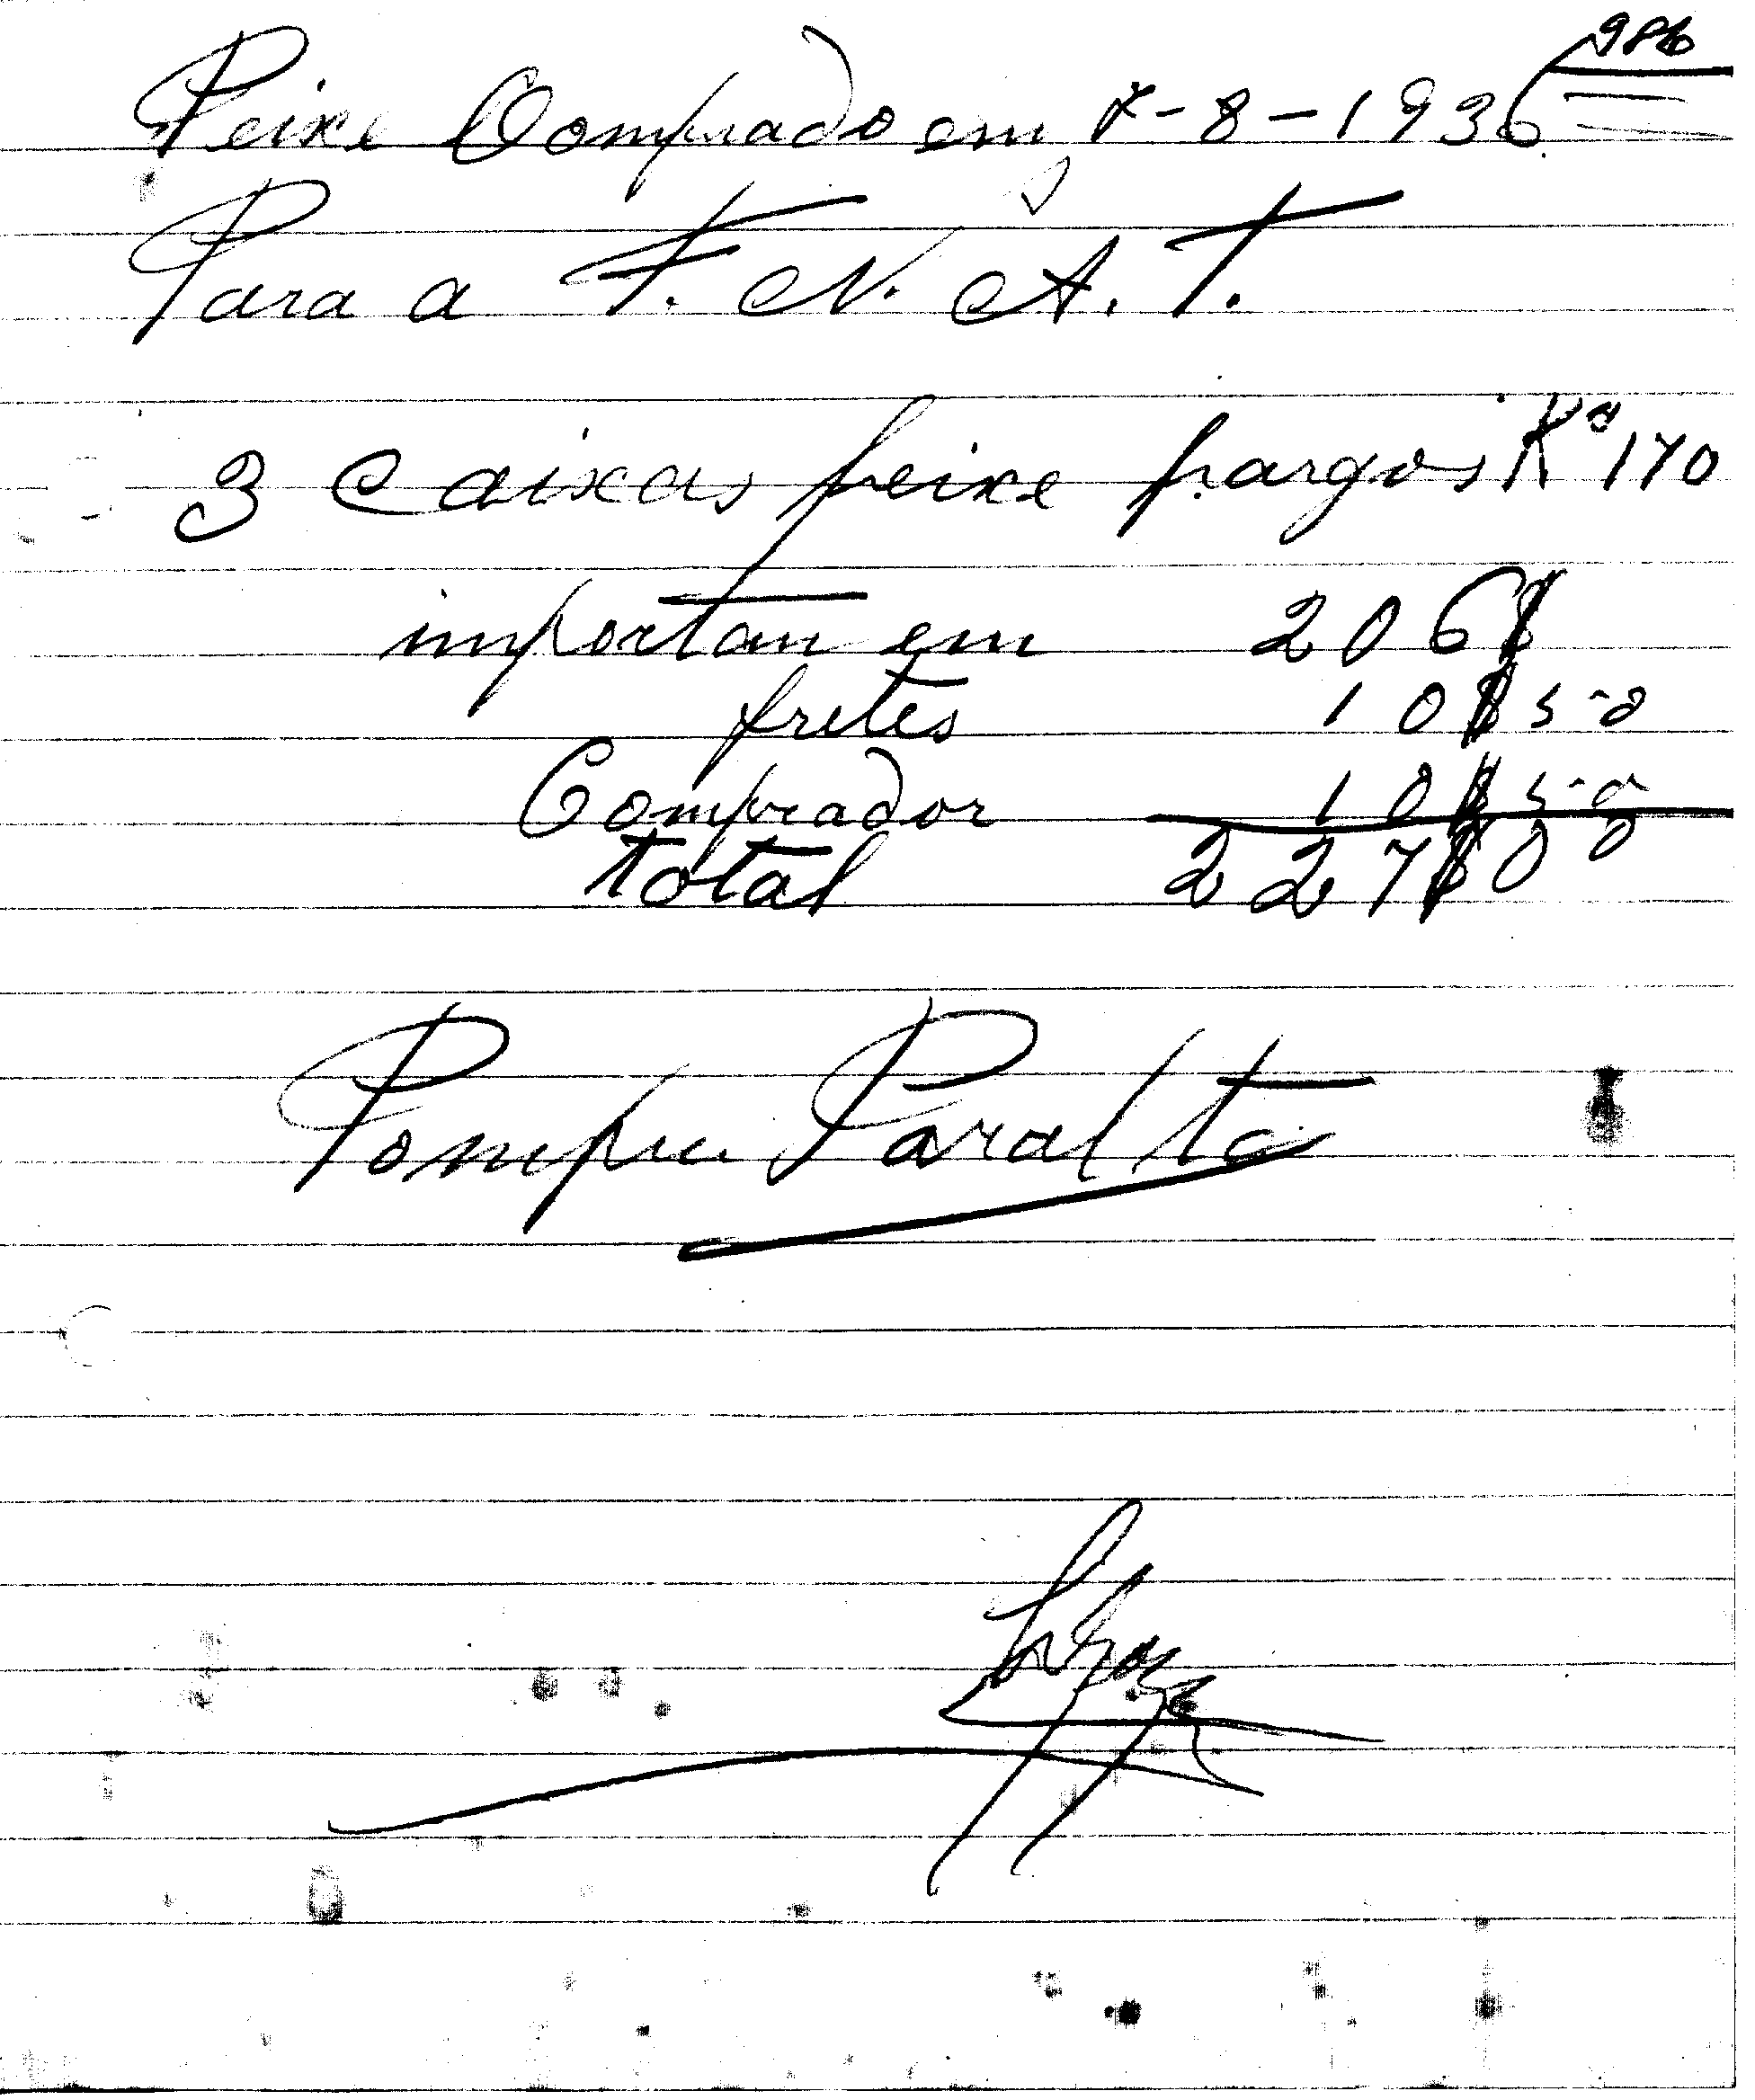 986
Peixe Comprado em 7-8-1936
Para a F. N. A. T.
3 Caixas peixe pargos Kº 170
importam em 206$
fretes 10$50
Comprador 10$50
total 227$00
Pompeu Paralta